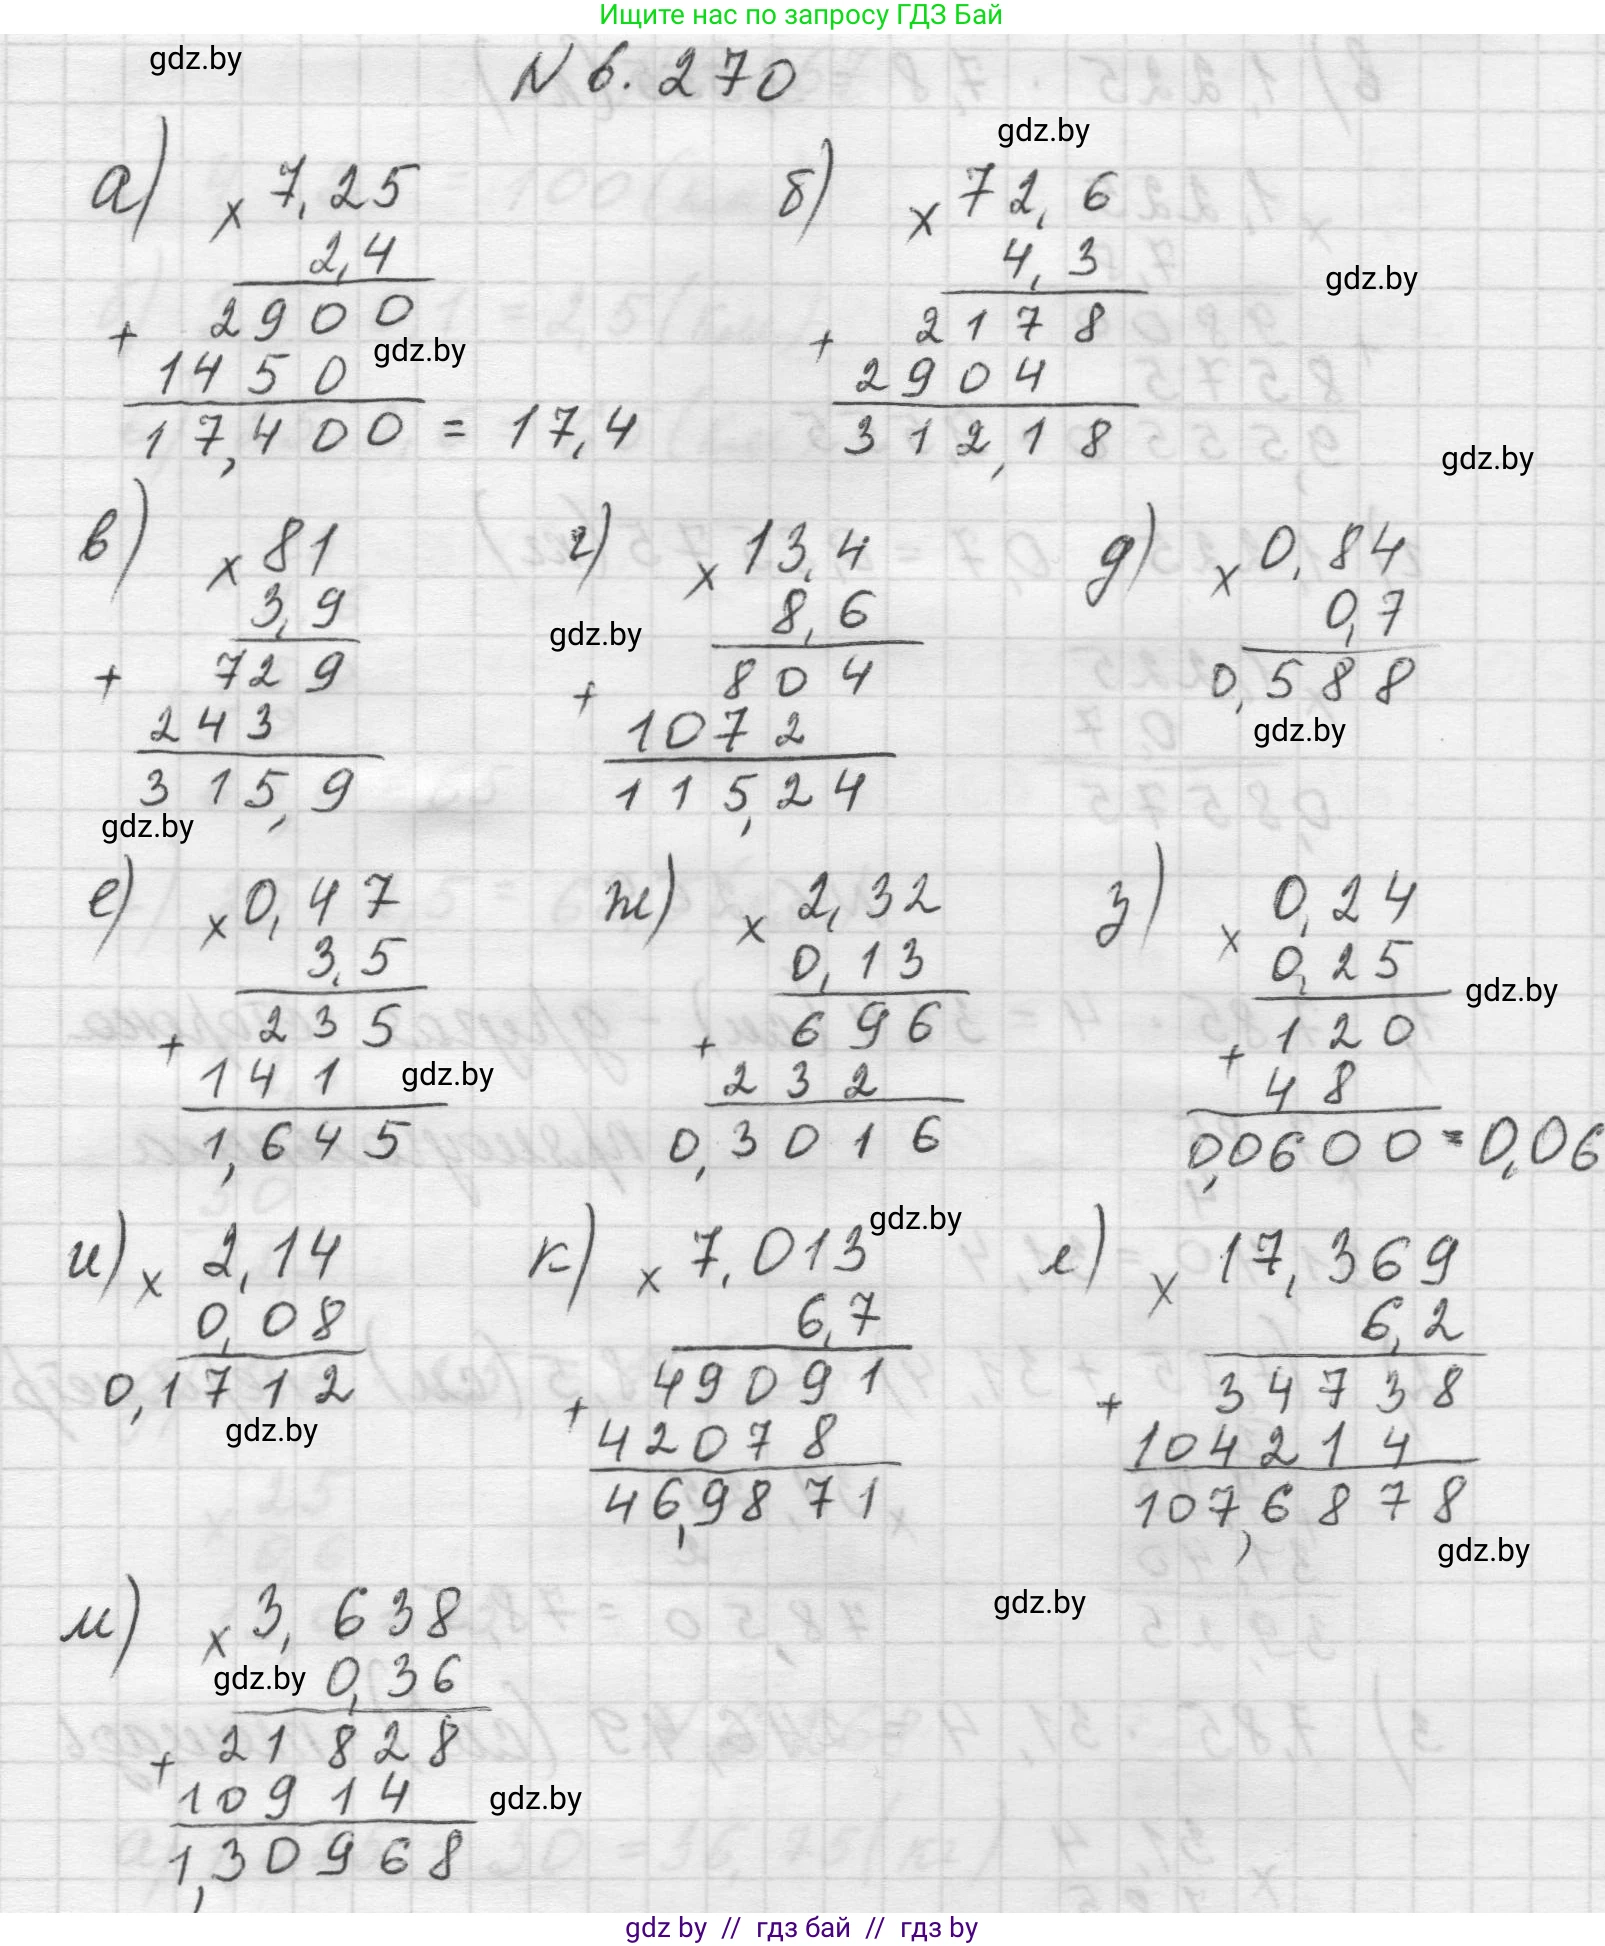 Ищите нас по запросу ГДЗ Бай
gdz.by
N 6.270
gdz.by
а) × 7,25
2,4
2900
+ 1450
17,400 = 17,4
gdz.by
б) × 72,6
4,3
2178
+ 2904
312,18
gdz.by
gdz.by
в) × 81
3,9
729
+ 243
315,9
gdz.by
г) × 13,4
8,6
804
+ 1072
115,24
gdz.by
д) × 0,84
0,7
0,588
gdz.by
е) × 0,47
3,5
235
+ 141
1,645
gdz.by
ж) × 2,32
0,13
696
+ 232
0,3016
з) × 0,24
0,25
120
+ 48
0,0600 = 0,06
gdz.by
и) × 2,14
0,08
0,1712
gdz.by
к) × 7,013
6,7
49091
+ 42078
46,9871
gdz.by
л) × 17,369
6,2
34738
+ 104214
107,6878
gdz.by
gdz.by
м) × 3,638
0,36
21828
+ 10914
1,30968
gdz.by
gdz.by
gdz by // гдз бай // гдз by